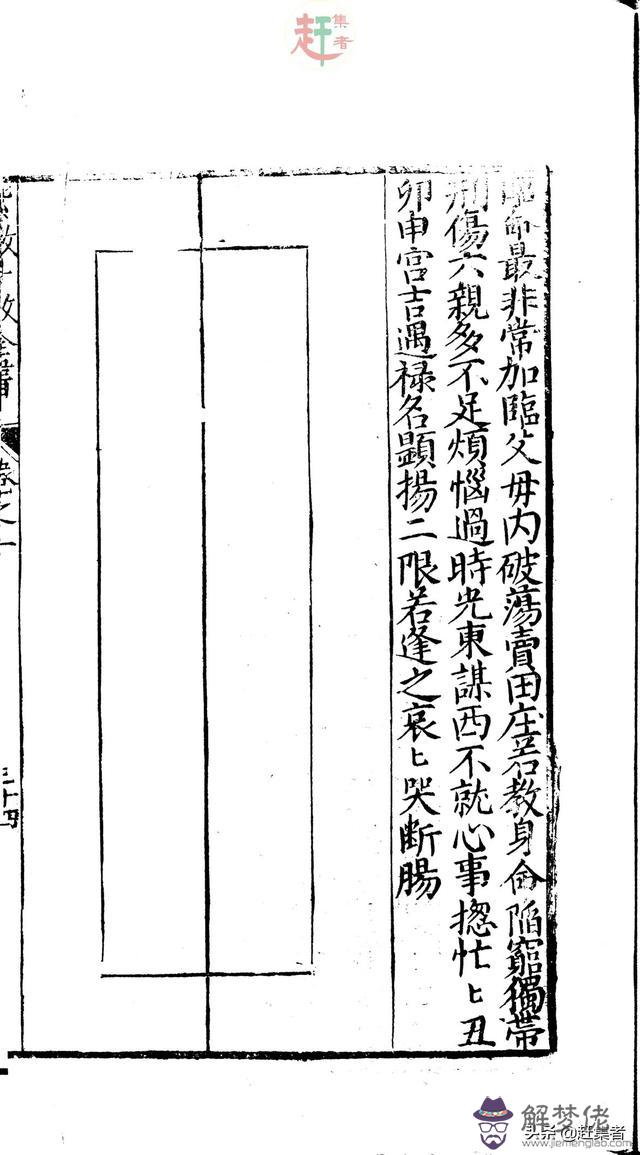 赶集者
最非常加臨父母内破蕩賣田庄若教身命陷窮獨帶
刑傷六親多不足煩惱過時光東謀西不就心事揔忙〻丑
卯申宮吉遇禄名顯揚二限若逢之哀〻哭断腸
三十四
解梦佬
www.jiemenglao.com
头条@赶集者